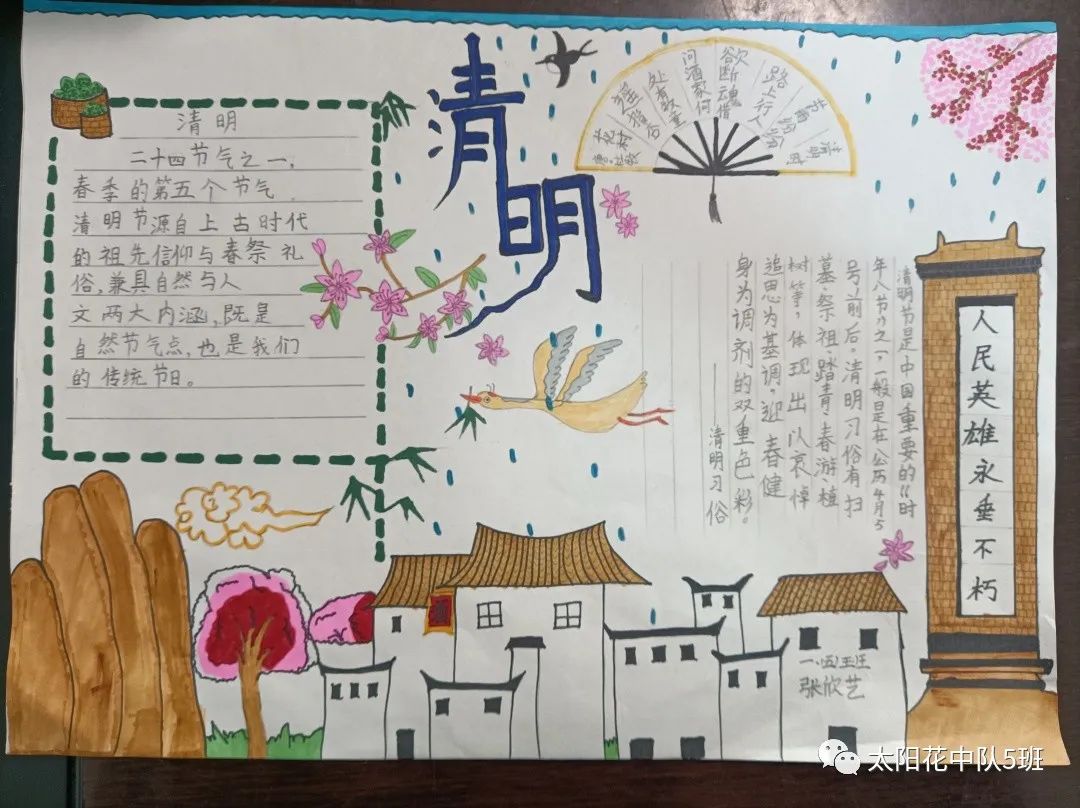 清明
清明
二十四节气之一，
春季的第五个节气，
清明节源自上古时代
的祖先信仰与春祭礼
俗，兼具自然与人
文两大内涵，既是
自然节气点，也是我们
的传统节日。
清明时
路上行人
欲断魂借
问酒家何
处有牧童
花村
清明节是中国重要的“时
年八节”之一，一般是在公历4月5
号前后。清明习俗有扫
墓祭祖、踏青、春游、植
树等，体现出以哀悼
追思为基调，迎春健
身为调剂的双重色彩。
——清明习俗
人民英雄永垂不朽
张欣艺
太阳花中队5班